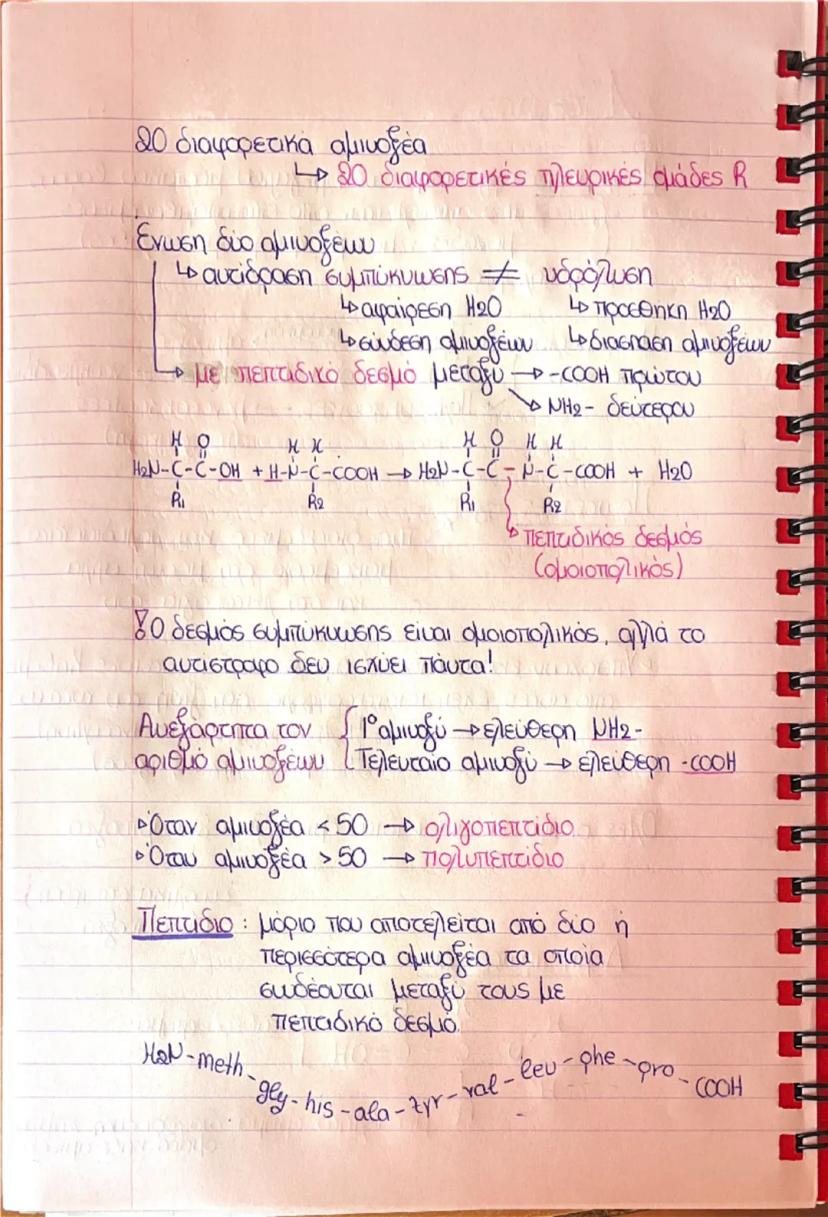 20 διαφορετικά αμινοξέα
↳ 20 διαφορετικές πλευρικές ομάδες R
Ένωση δύο αμινοξέων
↳ αντίδραση συμπύκνωσης ≠ υδρόλυση
↳ αφαίρεση H2O ↳ προσθήκη H2O
↳ σύνδεση αμινοξέων ↳ διάσπαση αμινοξέων
↳ με πεπτιδικό δεσμό μεταξύ → -COOH πρώτου
↘ NH2- δεύτερου
H O H H H O H H
H2N-C-C-OH + H-N-C-COOH → H2N-C-C-N-C-COOH + H2O
R1 R2 R1 R2
πεπτιδικός δεσμός
(ομοιοπολικός)
! Ο δεσμός συμπύκνωσης είναι ομοιοπολικός, αλλά το
αντίστροφο δεν ισχύει πάντα!
Ανεξάρτητα τον { 1ο αμινοξύ → ελεύθερη NH2-
αριθμό αμινοξέων Τελευταίο αμινοξύ → ελεύθερη -COOH
Όταν αμινοξέα < 50 → ολιγοπεπτίδιο
Όταν αμινοξέα > 50 → πολυπεπτίδιο
Πεπτίδιο : μόριο που αποτελείται από δύο ή
περισσότερα αμινοξέα τα οποία
συνδέονται μεταξύ τους με
πεπτιδικό δεσμό.
H2N-meth-gly-his-ala-tyr-val-leu-phe-pro-COOH